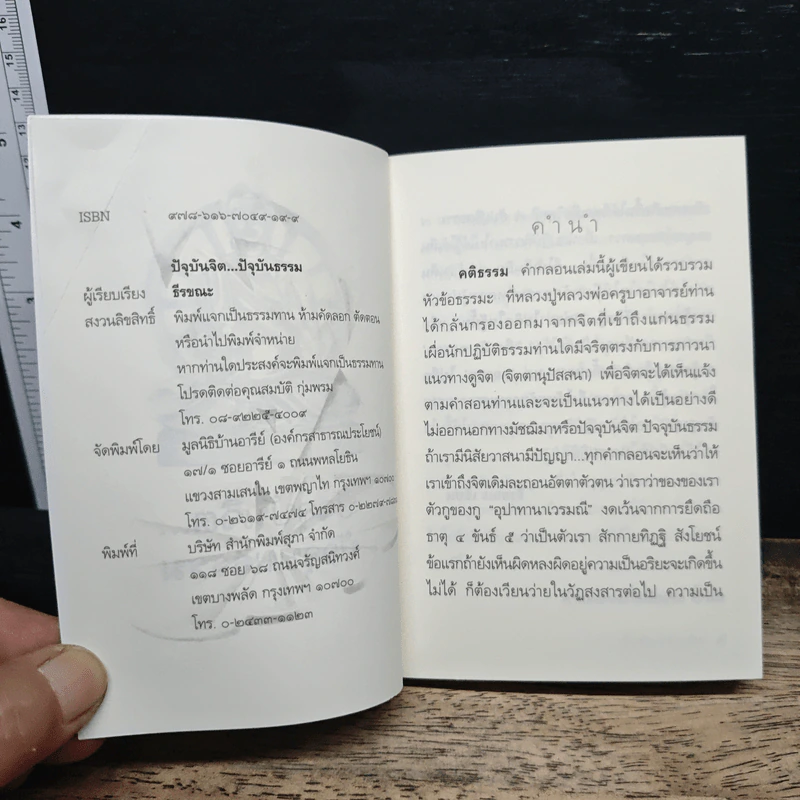 ISBN ๙๗๘-๖๑๖-๗๐๔๙-๑๙-๙
ปัจุบันจิต...ปัจุบันธรรม
ผู้เรียบเรียง ธีรขณะ
สงวนลิขสิทธิ์ พิมพ์แจกเป็นธรรมทาน ห้ามคัดลอก ตัดตอน
หรือนำไปพิมพ์จำหน่าย
หากท่านใดประสงค์จะพิมพ์แจกเป็นธรรมทาน
โปรดติดต่อคุณสมบัติ กุ่มพรม
โทร. ๐๘-๙๒๒๕-๔๐๐๙
จัดพิมพ์โดย มูลนิธิบ้านอารีย์ (องค์กรสาธารณประโยชน์)
๑๗/๑ ซอยอารีย์ ๑ ถนนพหลโยธิน
แขวงสามเสนใน เขตพญาไท กรุงเทพฯ ๑๐๔๐๐
โทร. ๐-๒๖๑๙-๗๔๗๔ โทรสาร
พิมพ์ที่ บริษัท สำนักพิมพ์สุภา จำกัด
๑๑๘ ซอย ๖๘ ถนนจรัญสนิทวงศ์
เขตบางพลัด กรุงเทพฯ ๑๐๗๐๐
โทร. ๐-๒๔๓๓-๑๑๒๓
คำนำ
คติธรรม คำกลอนเล่มนี้ผู้เขียนได้รวบรวม
หัวข้อธรรมะ ที่หลวงปู่หลวงพ่อครูบาอาจารย์ท่าน
ได้กลั่นกรองออกมาจากจิตที่เข้าถึงแก่นธรรม
เผื่อนักปฏิบัติธรรมท่านใดมีจริตตรงกับการภาวนา
แนวทางดูจิต (จิตตานุปัสสนา) เพื่อจิตจะได้เห็นแจ้ง
ตามคำสอนท่านและจะเป็นแนวทางได้เป็นอย่างดี
ไม่ออกนอกทางมัชฌิมาหรือปัจจุบันจิต ปัจจุบันธรรม
ถ้าเรามีนิสัยวาสนามีปัญญา...ทุกคำกลอนจะเห็นว่าให้
เราเข้าถึงจิตเดิมละถอนอัตตาตัวตน ว่าเราว่าของของเรา
ตัวกูของกู “อุปาทานาเวรมณี” งดเว้นจากการยึดถือ
ธาตุ ๔ ขันธ์ ๕ ว่าเป็นตัวเรา สักกายทิฏฐิ สังโยชน์
ข้อแรกถ้ายังเห็นผิดหลงผิดอยู่ความเป็นอริยะจะเกิดขึ้น
ไม่ได้ ก็ต้องเวียนว่ายในวัฏสงสารต่อไป ความเป็น